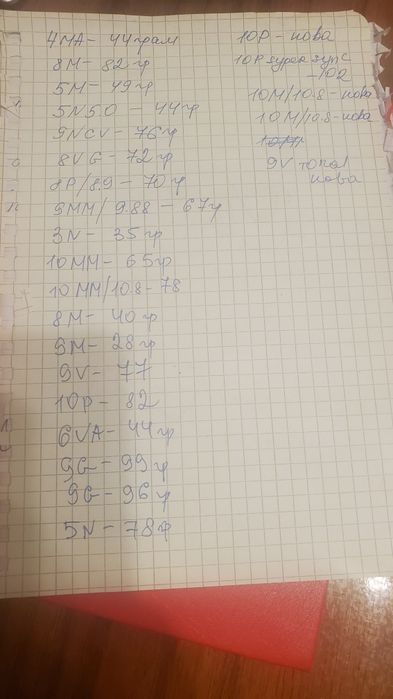 4MA - 44грам
8M - 82гр
5M - 49гр
5N5.0 - 44гр
9NCV - 76гр
8VG - 72гр
8P/8.9 - 70гр
9MM/9.88 - 67гр
3N - 35гр
10MM - 65гр
10MM/10.8 - 78
8M - 40гр
9M - 28гр
9V - 77
10P - 82
6VA - 44гр
9G - 99гр
9G - 96гр
5N - 78гр
10P - нова
10P super sync
10M/10.8 - нова
10M/10.8 - нова
9V топаз
нова